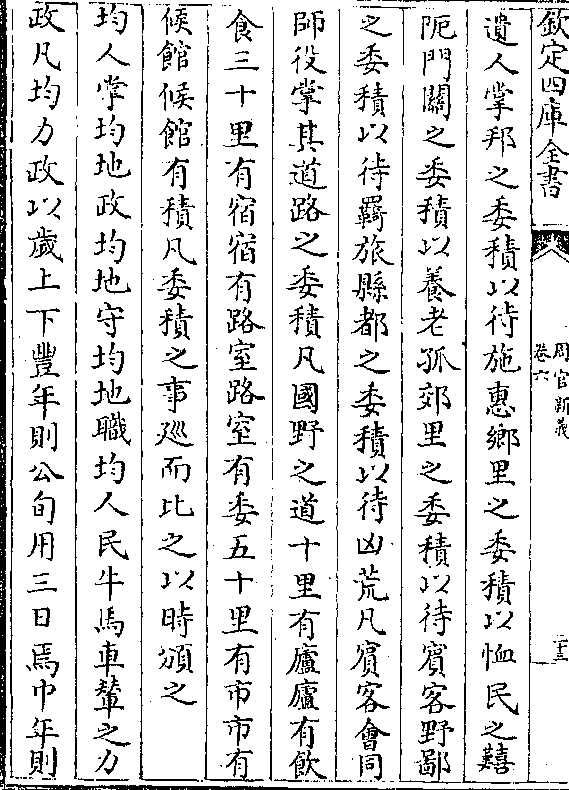 欽定四庫全書
周官新義
卷六
二十三
遺人掌邦之委積以待施惠鄉里之委積以恤民之囏
阨門關之委積以養老孤郊里之委積以待賓客野鄙
之委積以待羇旅縣都之委積以待凶荒凡賓客會同
師役掌其道路之委積凡國野之道十里有廬廬有飲
食三十里有宿宿有路室路室有委五十里有市市有
候館候館有積凡委積之事廵而比之以時頒之
均人掌均地政均地守均地職均人民牛馬車輦之力
政凡均力政以歲上下豐年則公旬用三日焉中年則